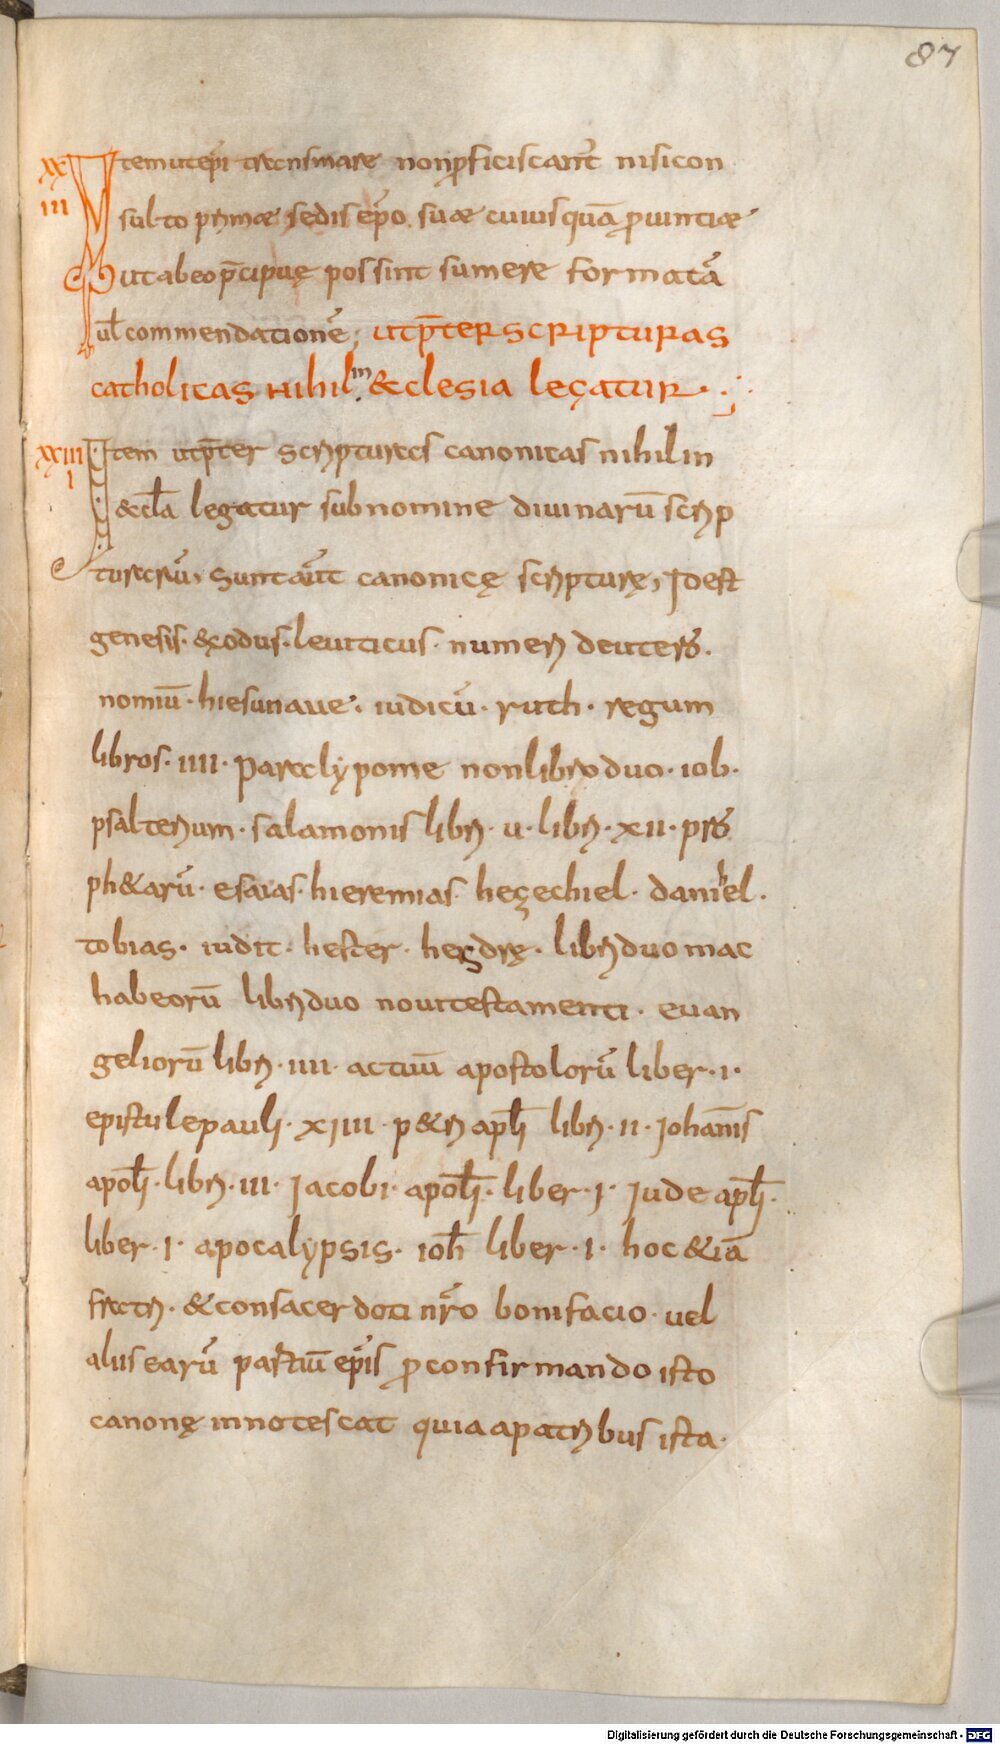 87
xx Item ut ep̄i trans mare non ꝓficiscant̄ nisi con
iii sulto primae sedis ep̄o. suae cuiusquā ꝓuintiae
ut ab eo p̄cipuę possint sumere formatā
ul̄ commendationē; ut p̄ter scripturas
catholicas nihil in &clesia leçatur
xxiii Item ut p̄ter scripturas canonicas nihil in
i &cl̄a legatur sub nomine diuinarū scrip
turarū, Sunt aūt canonicę scripturę, Id est
genesis. &xodus. leuiticus. numeri deutero.
nomiū. hiesu naue. iudicū. ruth. regum
libros. IIII. Paraclypome non libro duo. iob.
psalterium. salamonis libri. u. libri. xii. pro
ph&arū. esaias. hieremias. heçechiel. danihel.
tobias. iudit. hester. hesdrę. libri duo mac
habeorū libri duo noui testamenti. euan
geliorū libri. IIII. actuū apostolorū liber. I.
epistule pauli. xiiii. p&ri apl̄i libri. II. Iohannis
apol̄i. libri. III. Iacobi. apol̄i. liber. I. Iude apl̄i.
liber. I. apocalypsis. ioh̄ liber. I. hoc &iā
fratri. & consacerdoti nr̄o bonifacio. uel
aliis earū partiū ep̄is ꝓ confirmando isto
canonę innotescat quia a patribus ista.
Digitalisierung gefördert durch die Deutsche Forschungsgemeinschaft - DFG